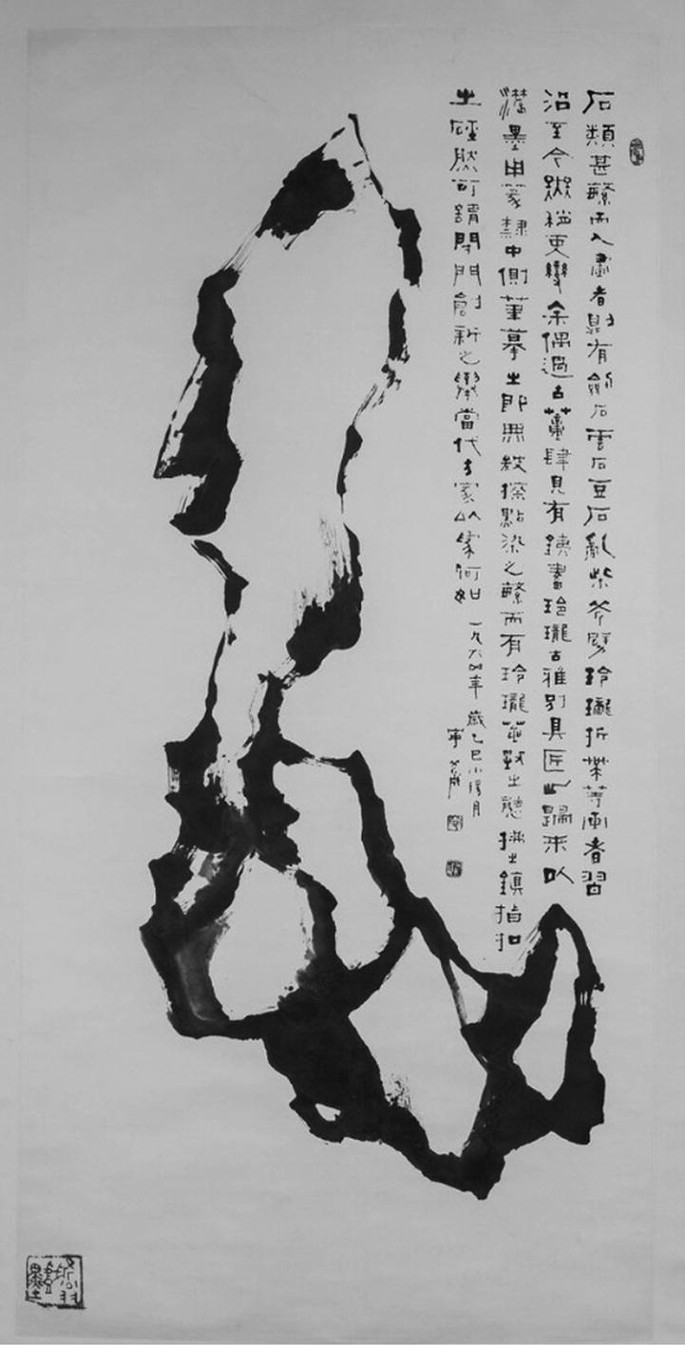 石類甚繁而入畫者則有劍石雲石豆石亂柴斧劈玲瓏折帶等画者習
沿至今鮮稍更變余偶過古董肆見有鐵畫玲瓏古雅別具匠心歸來以
濃墨由篆隸中側筆摹之即無皴擦點染之繁而有玲瓏之態扣之鎮指扣
之硜然可謂閉門創新之舉當代方家以為何如
一九六四年歲乙巳小陽月